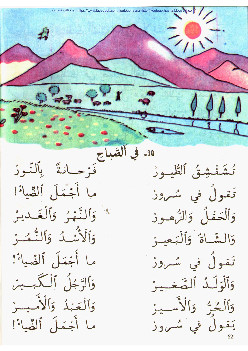 ١٥- في الصَّباح
تُشَقْشِقُ الطُّيورْ فَرْحانَةً بِالنّورْ
تَقولُ في سُرورْ ما أَجْمَلَ الضِّياءْ!
وَالْحَقْلُ وَالزُّهورْ وَالنَّهْرُ وَالْغَديرْ
وَالشّاةُ وَالْبَعيرْ وَالْأُسْدُ وَالنُّمورْ
تَقولُ في سُرورْ ما أَجْمَلَ الضِّياءْ!
وَالْوَلَدُ الصَّغيرْ وَالرَّجُلُ الْكَبيرْ
وَالْحُرُّ وَالْأَسيرْ وَالْعَبْدُ وَالْأَميرْ
يَقولُ في سُرورْ ما أَجْمَلَ الضِّياءْ!